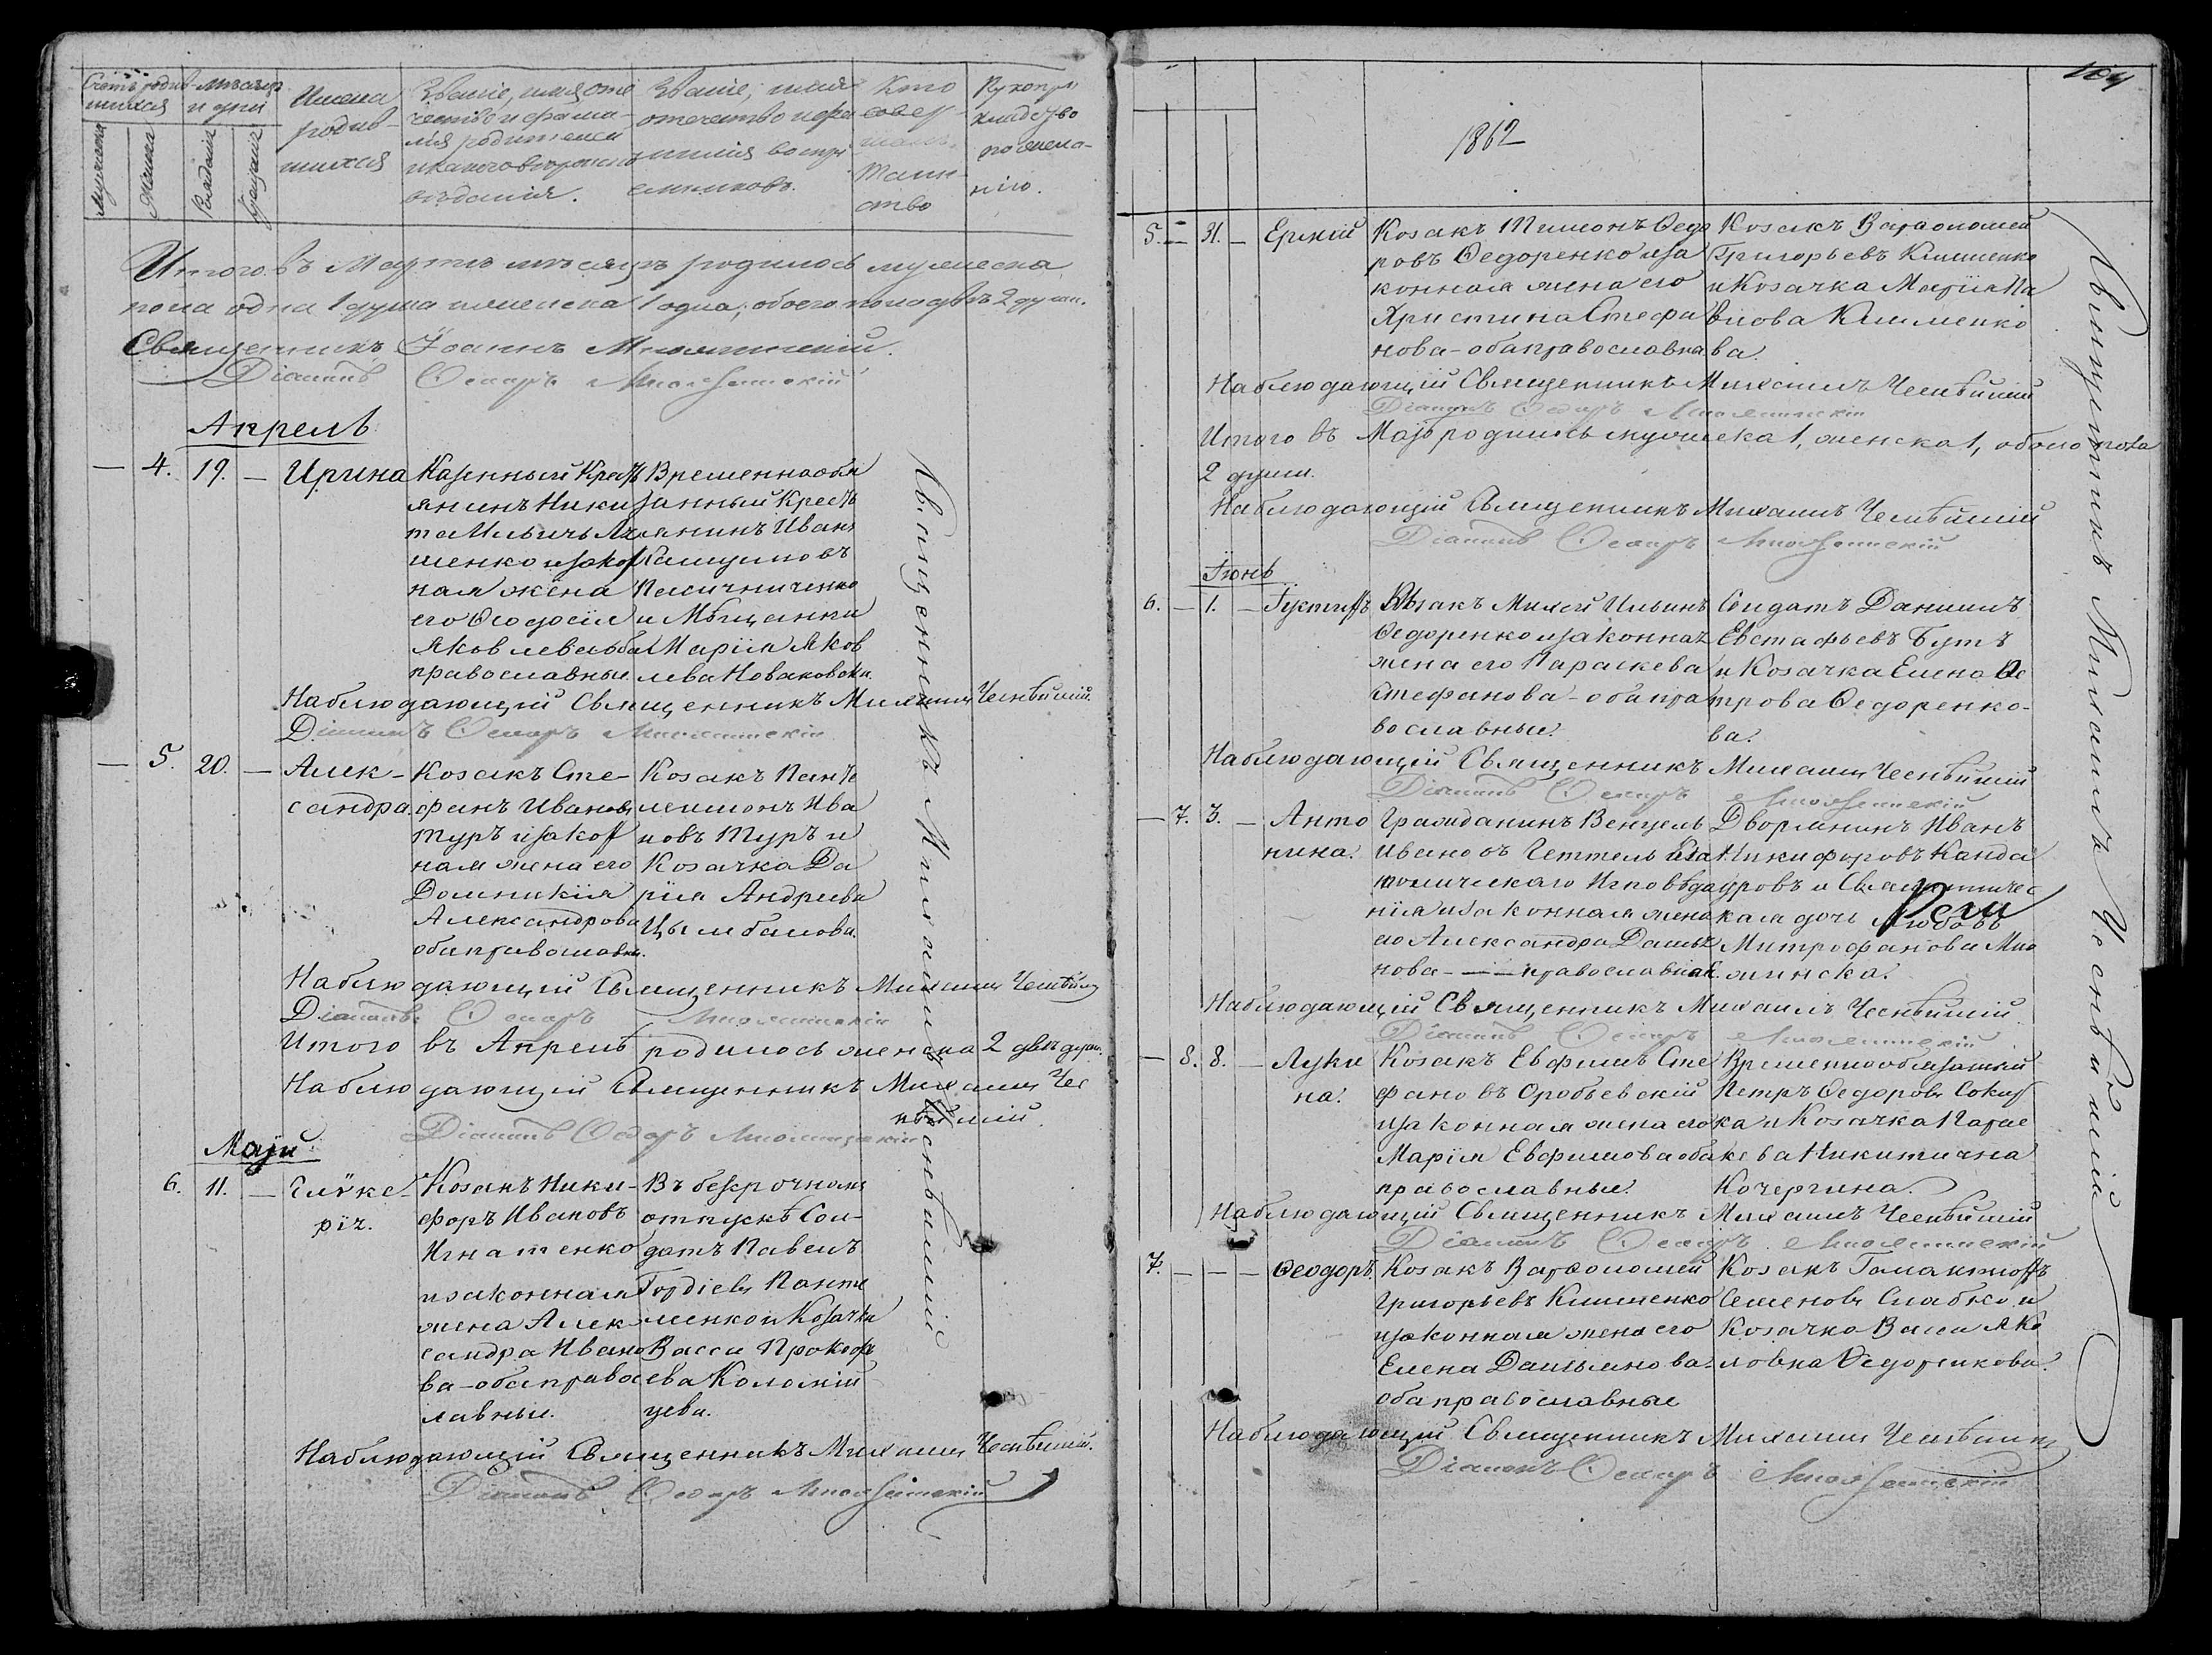 Счетъ родив-
шихся
мѣсяцъ
и дни
Имена
родив-
шихся
Званіе, имя, оте
чество и фами-
лія родителей
и какого вѣроиспо
вѣданія.
Званіе, имя
отечество и фа
милія воспрі
емниковъ.
Кто
совер-
шалъ
таин-
ство
Рукопри
кладство
по жела-
нію.
Мужеска
Женска
Рожденія
Крещенія
Итого въ Мартѣ мѣсяцѣ родилось мужеска
пола одна 1 душа женска 1 одна; обоего пола двѣ 2 души.
Священникъ Іоаннъ
Діаконъ Ѳеодоръ
Апрель
— 4. 19. — Ирина
Казенный Кресть
янинъ Ники
та Ильичъ Ля
шенко и закон
ная жена
его Ѳеодосія
Яковлева оба
православные.
Временнообя
занный Кресть
янинъ Иванъ
Пасичниченко
и Мѣщанка
Марія Яков
лева Новаковска.
Наблюдающій Священникъ Михаилъ
Діаконъ Ѳеодоръ
— 5. 20. — Алек-
сандра.
Козакъ Сте-
фанъ Ивановъ
Туръ и закон
ная жена его
Домникія
Александрова
оба православн.
Козакъ Панте
леимонъ Ива
новъ Туръ и
Козачка Да
рія Андреева
Цымбалова.
Наблюдающій Священникъ Михаилъ
Діаконъ Ѳеодоръ
Итого въ Апрелѣ родилось женска 2 двѣ души.
Наблюдающій Священникъ Михаилъ
Діаконъ Ѳеодоръ
Маій
6. 11. — Глике-
рія.
Козакъ Ники-
форъ Ивановъ
Игнатенко
и законная
жена Алек-
сандра Ивано
ва - оба правос
лавные.
Въ безсрочномъ
отпускѣ Сол-
датъ Павелъ
Гордіевъ Панте
ленко и Козачка
Васса Прокофь
ева Коломій
цева.
Наблюдающій Священникъ Михаилъ
Діаконъ Ѳеодоръ
Священникъ Михаилъ
1862
104
5. — 31. — Ермій
Козакъ Тимонъ Ѳедо
ровъ Ѳедоренко и за
конная жена его
Христина Стефа
нова - оба православна
Козакъ Варѳоломей
Григорьевъ Клименко
и Козачка Марія Па
влова Клименко
ва.
Наблюдающій Священникъ Михаилъ
Діаконъ Ѳеодоръ
Итого въ Маѣ родилось мужеска 1, женска 1, обоего пола
2 души.
Наблюдающій Священникъ Михаилъ
Діаконъ Ѳеодоръ
Іюнь
6. — 1. — Іустинъ
Козакъ Михей Ильинъ
Ѳедоренко и законная
жена его Параскева
Стефанова - оба пра
вославные.
Солдатъ Даніилъ
Евстафьевъ Бутъ
и Козачка Елена Пе
трова Ѳедоренко-
ва.
Наблюдающій Священникъ Михаилъ
Діаконъ Ѳеодоръ
— 7. 3. — Анто
нина.
Гражданинъ Венцель
Ивановъ Геттель Ка
толическаго Исповѣда
нія и законная жена
его Александра Дамья
нова - — православная.
Дворянинъ Иванъ
Никифоровъ Канда
уровъ и Священничес
кая дочь Любовь
Митрофанова
Наблюдающій Священникъ Михаилъ
Діаконъ Ѳеодоръ
— 8. 8. — Луки
на.
Козакъ Евфимъ Сте
фановъ Оробьевскій
и законная жена его
Марія Евфимова оба
православные.
Временнообязанный
Петръ Ѳедоровъ Сокир
ка и Козачка Парас
кева Никитична
Кочергина.
Наблюдающій Священникъ Михаилъ
Діаконъ Ѳеодоръ
7. — — — Ѳеодоръ.
Козакъ Варѳоломей
Григорьевъ Клименко
и законная жена его
Елена Дамьянова
оба православные
Козакъ Галактіонъ
Семеновъ Слабко и
Козачка Васса Яко
ловна Ѳедоренкова.
Наблюдающій Священникъ Михаилъ
Діаконъ Ѳеодоръ
Священникъ Михаилъ